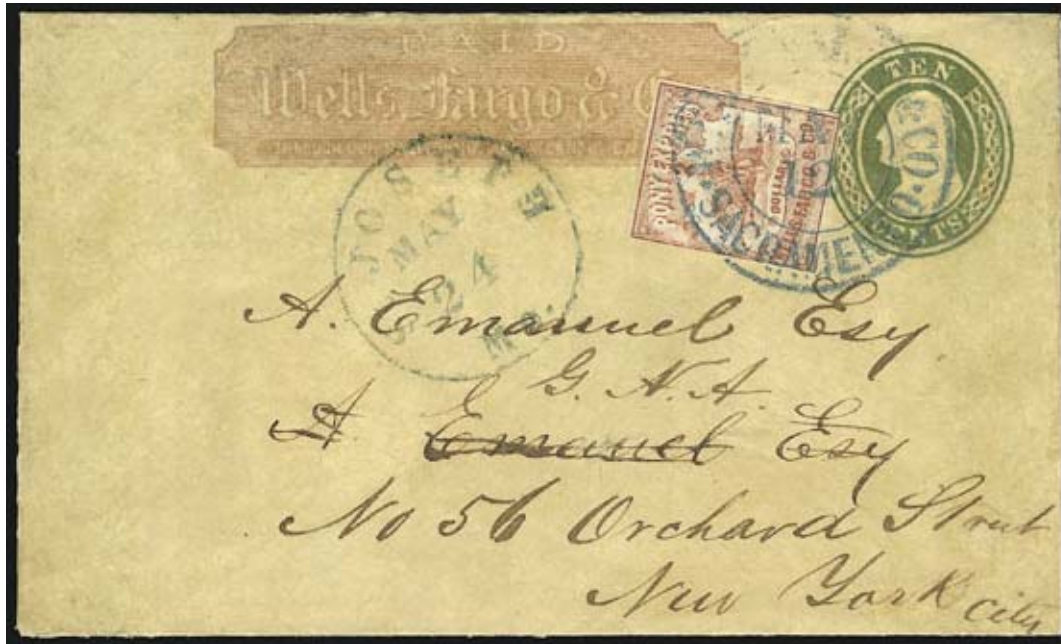 PAID
Wells, Fargo & C
TEN
CENTS
PONY EXPRESS
DOLLAR
WELLS FARGO & CO.
& CO.
SACRAMEN
ST JOSEPH
MAY
24
MO.
A. Emanuel Esq
G. N. A.
A Emanuel Esq
No 56 Orchard Street
New York City